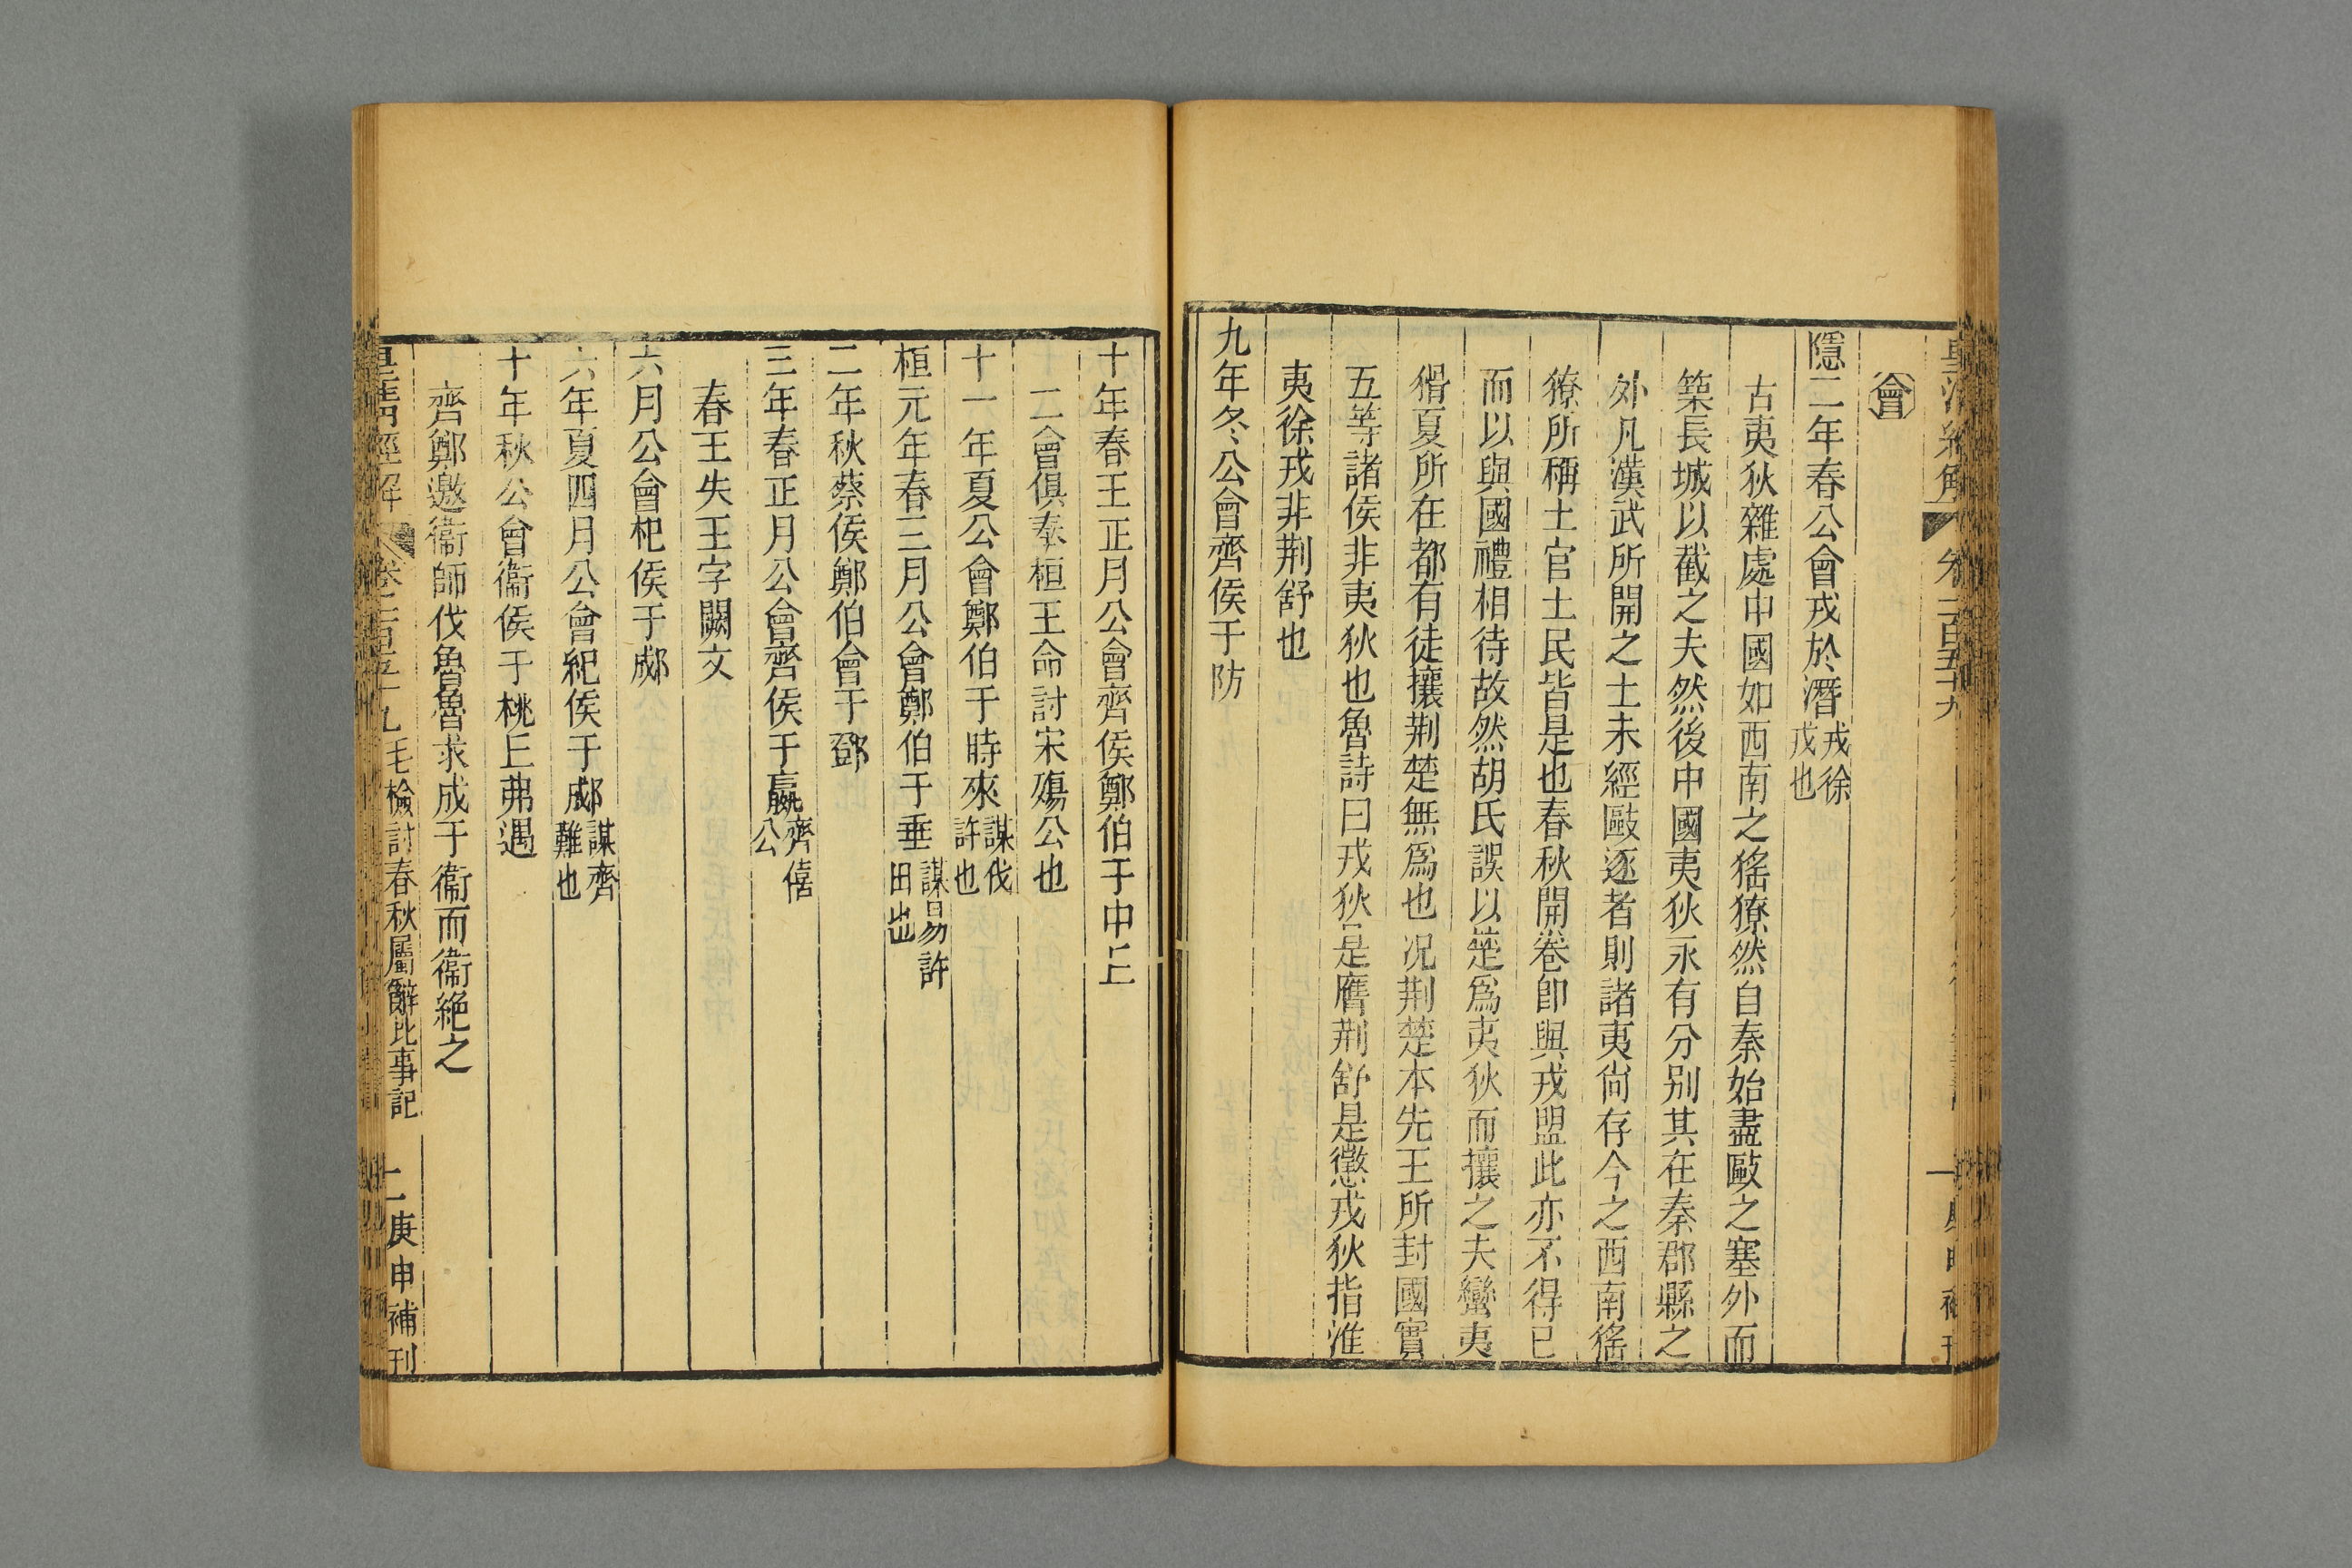 皇清經解 卷一百五十九
會
隱二年春公會戎於潛戎徐戎也
古夷狄雜處中國如西南之猺獠然自秦始盡敺之塞外而
築長城以截之夫然後中國夷狄永有分别其在秦郡縣之
外凡漢武所開之土未經敺逐者則諸夷尙存今之西南猺
獠所稱土官土民皆是也春秋開卷卽與戎盟此亦不得已
而以與國禮相待故然胡氏誤以楚爲夷狄而攘之夫蠻夷
猾夏所在都有徒攘荆楚無爲也况荆楚本先王所封國實
五等諸侯非夷狄也魯詩曰戎狄是膺荆舒是懲戎狄指淮
夷徐戎非荆舒也
九年冬公會齊侯于防
十年春王正月公會齊侯鄭伯于中丘
二會俱奉桓王命討宋殤公也
十一年夏公會鄭伯于時來謀伐許也
桓元年春三月公會鄭伯于垂謀易許田也
二年秋蔡侯鄭伯會于鄧
三年春正月公會齊侯于嬴齊僖公
春王失王字闕文
六月公會杞侯于郕
六年夏四月公會紀侯于郕謀齊難也
十年秋公會衞侯于桃丘弗遇
齊鄭邀衞師伐魯魯求成于衞而衞絶之
皇淸經解 卷一百五十九 毛檢討春秋屬辭比事記 二 庚申補刊